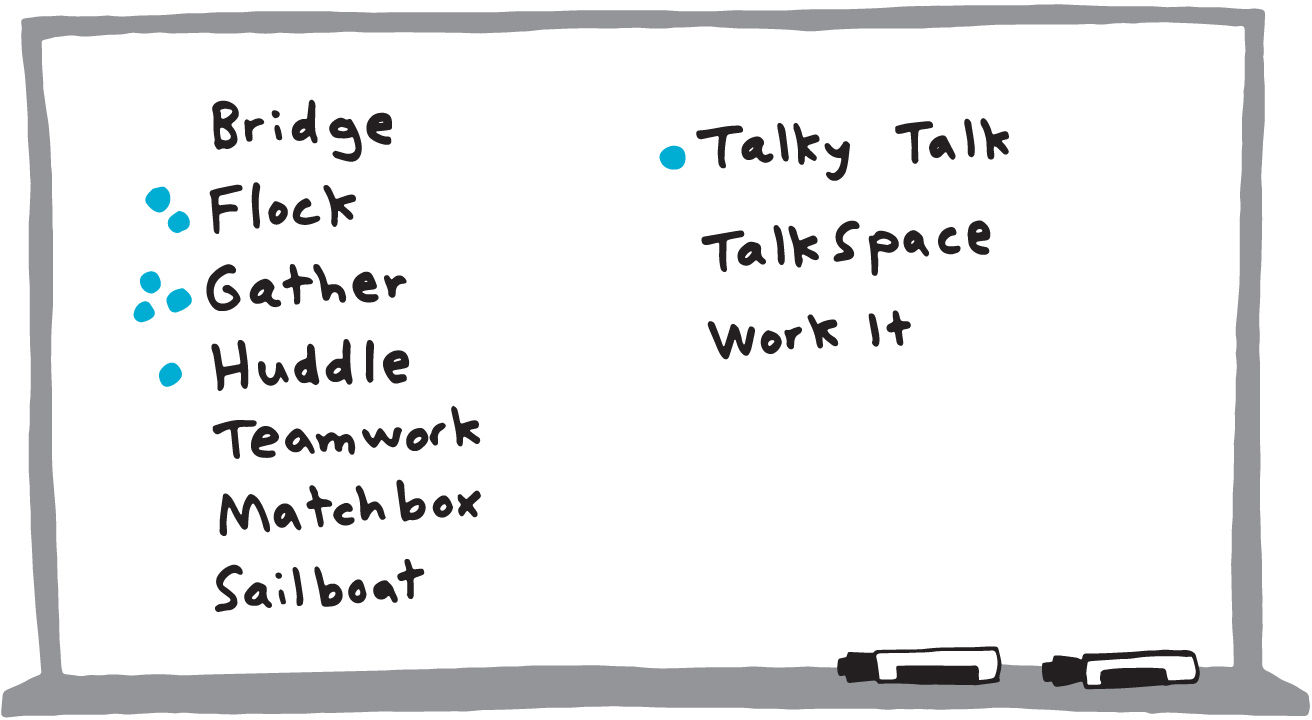 Bridge
Flock
Gather
Huddle
Teamwork
Matchbox
Sailboat
Talky Talk
TalkSpace
Work It